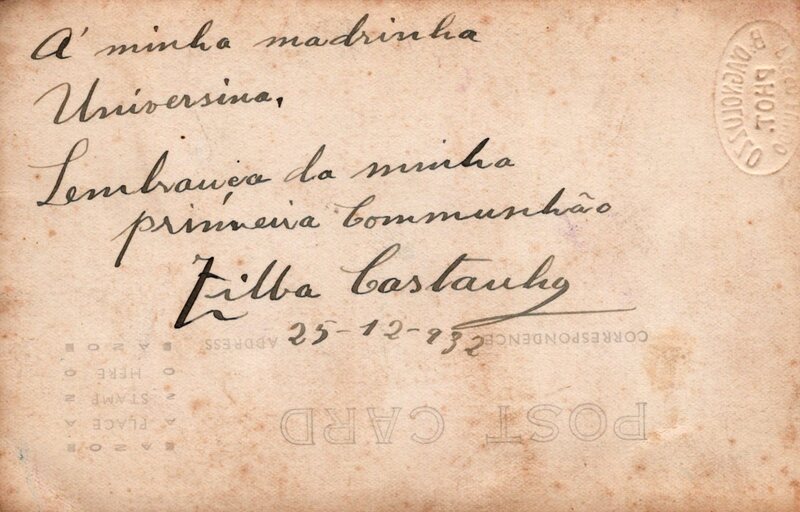 A' minha madrinha
Universina.
Lembrança da minha
primeira Communhão
Zilba Castanho
25-12-932
CORRESPONDENCE
ADDRESS
POST CARD
PLACE
STAMP
HERE
PHOT.